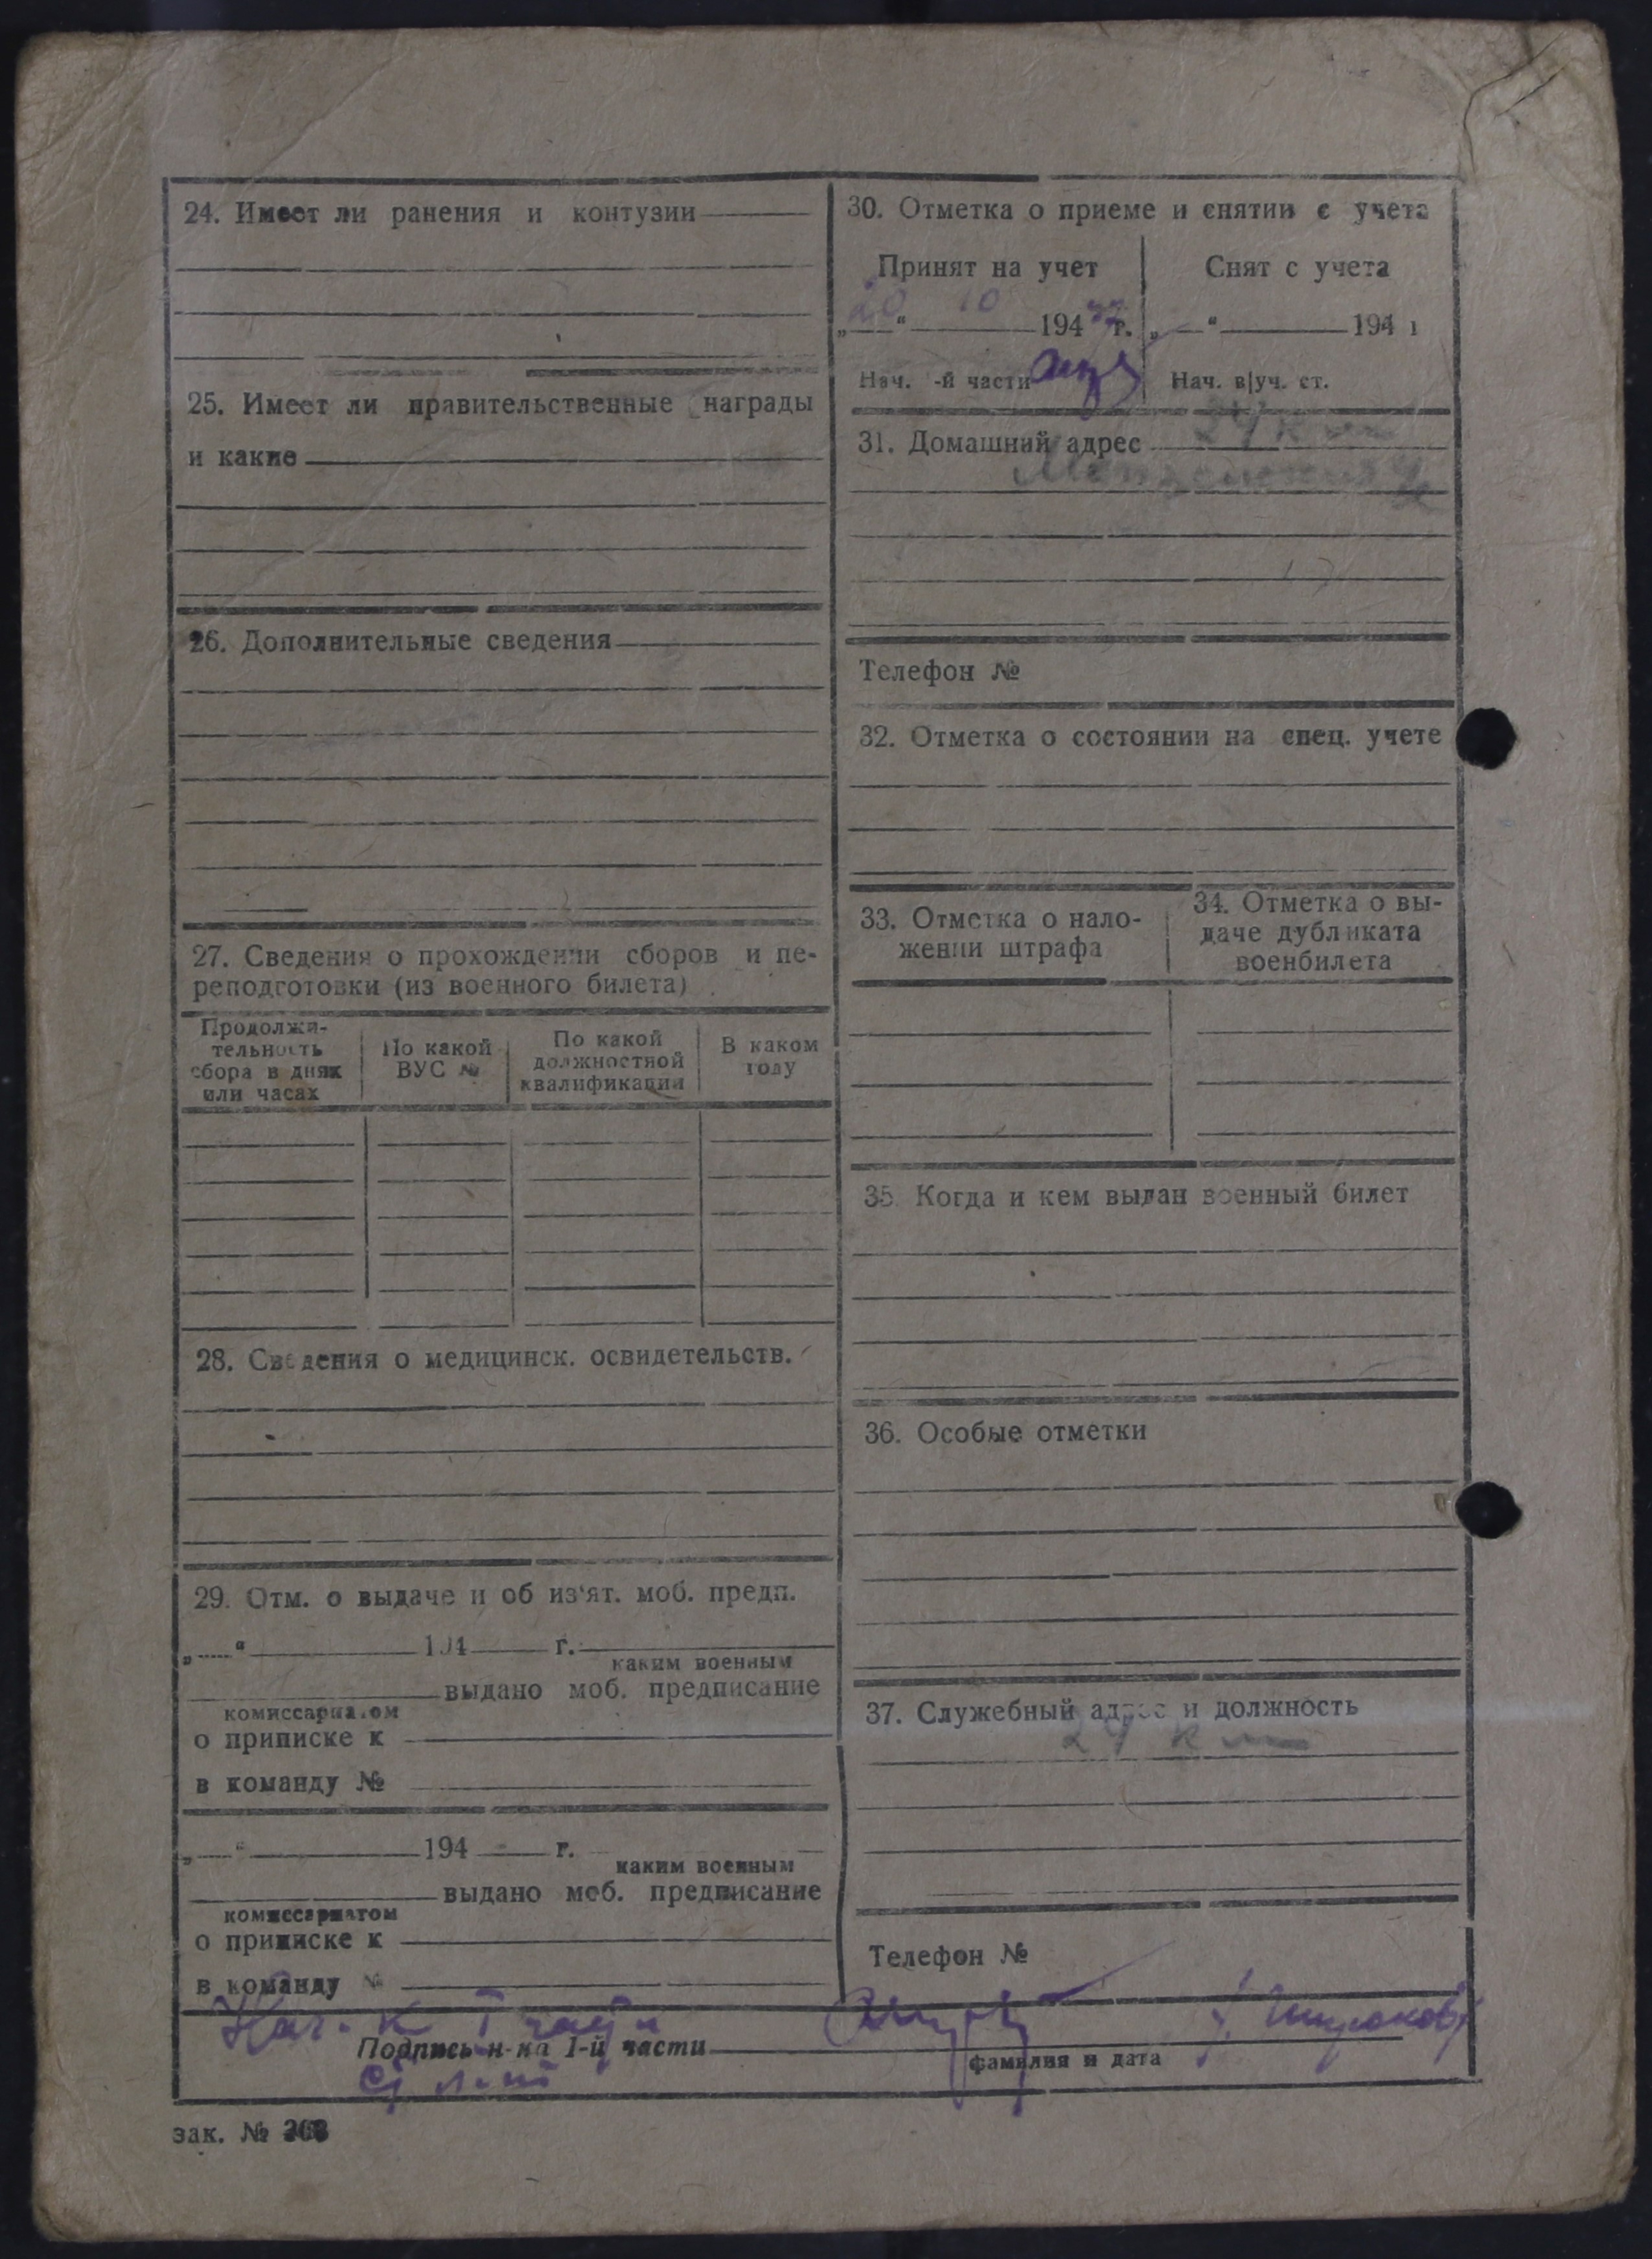 24. Имеет ли ранения и контузии
25. Имеет ли правительственные награды
и какие
26. Дополнительные сведения
27. Сведения о прохождении сборов и пе-
реподготовки (из военного билета)
Продолжи-
тельность
сбора в днях
или часах
По какой
ВУС №
По какой
должностной
квалификации
В каком
году
28. Сведения о медицинск. освидетельств.
29. Отм. о выдаче и об из'ят. моб. предп.
„ “ 194 г.
каким военным
выдано моб. предписание
комиссариатом
о приписке к
в команду №
„ “ 194 г.
каким военным
выдано моб. предписание
комиссариатом
о приписке к
в команду №
30. Отметка о приеме и снятии с учета
Принят на учет
„20“ 10 194 г.
Нач. -й части
Снят с учета
„ “ 194
Нач. в|уч. ст.
31. Домашний адрес 24 к
Телефон №
32. Отметка о состоянии на спец. учете
33. Отметка о нало-
жении штрафа
34. Отметка о вы-
даче дубликата
военбилета
35. Когда и кем выдан военный билет
36. Особые отметки
37. Служебный адрес и должность
24 к
Телефон №
Нач-к 1 части
Подпись н-ка 1-й части
фамилия и дата
зак. №